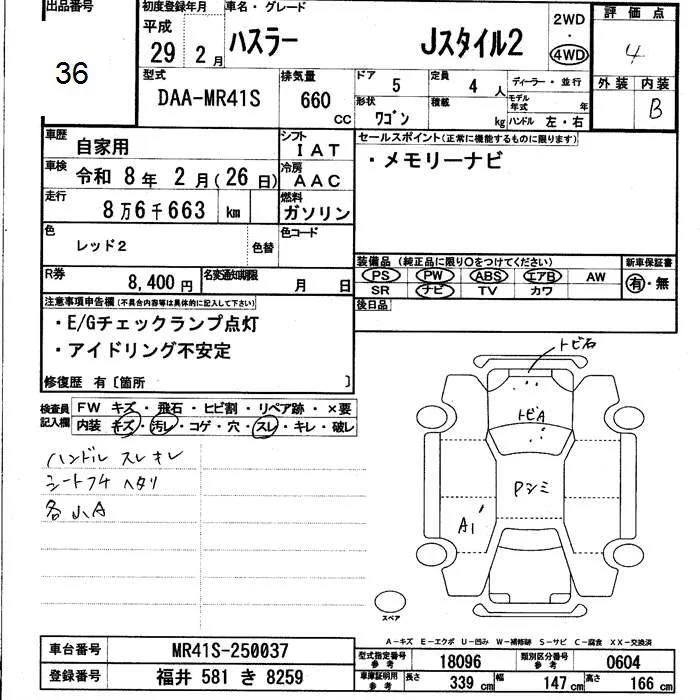 出品番号
36
初度登録年月
平成
29年 2月
車名・グレード
ハスラー Jスタイル2
2WD
・
4WD
評価点
4
外装 内装
B
型式
DAA-MR41S
排気量
660
CC
ドア 5
定員 4 人
ディーラー・並行
形状 ワゴン
積載 kg
モデル年式 年
ハンドル 左・右
車歴 自家用
シフト IAT
車検 令和 8年 2月(26日)
冷房 AAC
走行 8万6千663 km
燃料 ガソリン
色 レッド2 色替
色コード
R券 8,400円
名変通知期限 月 日
セールスポイント(正常に機能するものに限ります)
・メモリーナビ
装備品(純正品に限り○をつけてください)
PS PW ABS エアB AW
SR ナビ TV カワ
新車保証書
有・無
後日品
注意事項申告欄(不具合内容等は具体的に記入して下さい)
・E/Gチェックランプ点灯
・アイドリング不安定
修復歴 有〔箇所 〕
検査員記入欄
FW キズ・飛石・ヒビ割・リペア跡・×要
内装 キズ・汚レ・コゲ・穴・スレ・キレ・破レ
ハンドル スレキレ
シートフチ ヘタリ
各小A
トビ石
トビA
Pシミ
A1'
スペア
A-キズ E-エクボ U-凹み W-補修跡 S-サビ C-腐食 XX-交換済
車台番号 MR41S-250037
登録番号 福井 581 き 8259
型式指定番号 参考 18096
類別区分番号 参考 0604
車庫証明用 参考 長さ 339 cm 幅 147 cm 高さ 166 cm